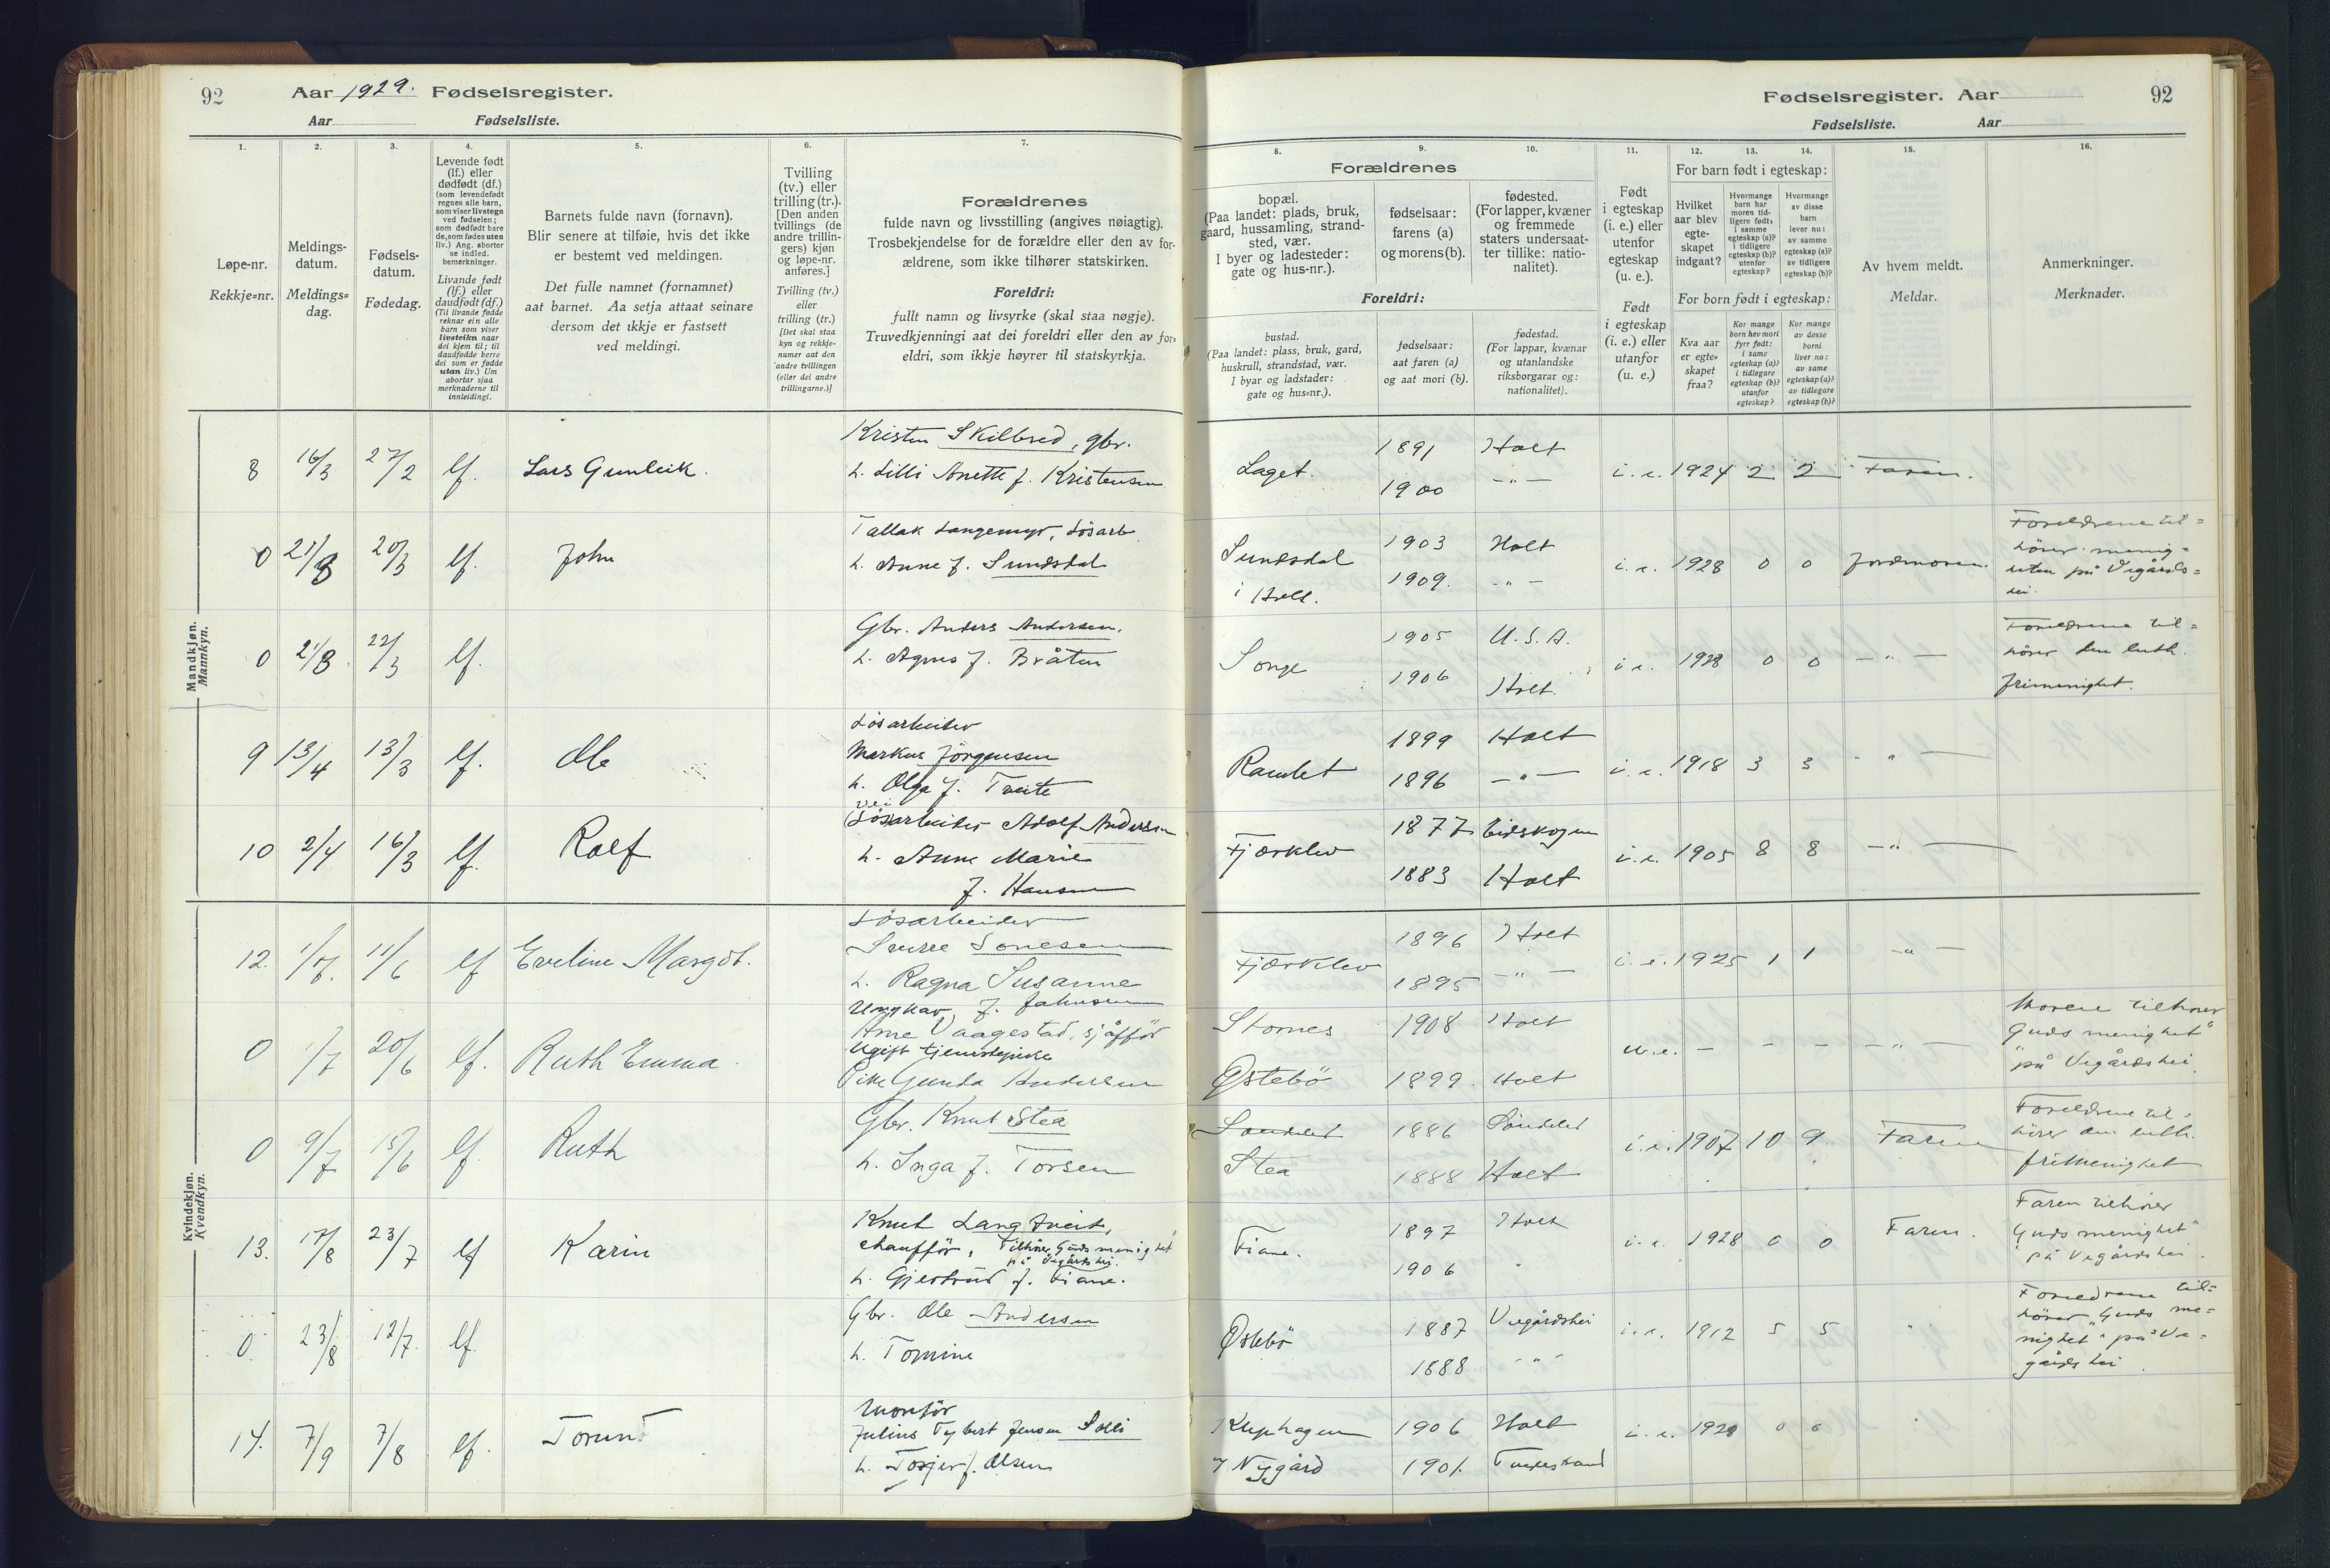 92
Aar 1929. Fødselsregister.
Aar Fødselsliste.
1.
2.
3.
4.
5.
6.
7.
Løpe-nr.
Rekkje=nr.
Meldings-
datum.
Meldings=
dag.
Fødsels-
datum.
Fødedag.
Levende født
(lf.) eller
dødfødt (df.)
(som levendefødt
regnes alle barn,
som viser livstegn
ved fødselen;
som dødfødt bare
de, som fødes uten
liv.) Ang. aborter
se indled.
bemerkninger.
Livande født
(lf.) eller
daudfødt (df.)
(Til livande fødde
reknar ein alle
barn som viser
livsteikn naar
dei kjem til; til
daudfødde berre
dei som er fødde
utan liv.) Um
abortar sjaa
merknaderne til
innleidingi.
Barnets fulde navn (fornavn).
Blir senere at tilføie, hvis det ikke
er bestemt ved meldingen.
Det fulle namnet (fornamnet)
aat barnet. Aa setja attaat seinare
dersom det ikkje er fastsett
ved meldingi.
Tvilling
(tv.) eller
trilling (tr.).
[Den anden
tvillings (de
andre trillin-
gers) kjøn
og løpe-nr.
anføres.]
Tvilling (tv.)
eller
trilling (tr.)
[Det skal staa
kyn og rekkje-
numer aat den
andre tvillingen
(eller dei andre
trillingarne.)]
Forældrenes
fulde navn og livsstilling (angives nøiagtig).
Trosbekjendelse for de forældre eller den av for-
ældrene, som ikke tilhører statskirken.
Foreldri:
fullt namn og livsyrke (skal staa nøgje).
Truvedkjenningi aat dei foreldri eller den av for=
eldri, som ikkje høyrer til statskyrkja.
Mandkjøn.
Mannkyn.
8 16/3 27/2 lf. Lars Gunleik.
Kristen Skilbred, gbr.
h. Lilli Anette f. Kristensen
0 21/8 20/3 lf. John
Tallak Langemyr, Løsarb.
h. Anne f. Sundsdal
0 21/8 22/3 lf.
Gbr. Anders Andersen.
h. Agnes f. Bråten
9 13/4 13/3 lf. Ole
Løsarbeider
Markus Jørgensen
h. Olga f. Tveite
10 2/4 16/3 lf. Rolf
vei
(Løs)arbeider Adolf Andersen
h. Anne Marie
f. Hansen
Kvindekjøn.
Kvendkyn.
12. 1/7. 11/6 lf Eveline Margot.
Løsarbeider
Sverre Tonesen
h. Ragna Susanne
f. Jahnsen
0 1/7 20/6 lf. Ruth Emma.
Ungkar
Arne Vaagestad, sjåfför
Ugift tjenestepike
Pike Gunda Andersen
0 9/7 15/6 lf. Ruth
Gbr. Knut Stea
h. Inga f. Torsen
13. 17/8 23/7 lf Karin
Knut Langtveit,
chauffør, Tilhører "Guds menighet"
på Vegårdshei.
h. Gjertrud f. Fiane.
0 23/8 12/7. lf.
Gbr. Ole Andersen
h. Tomine
14. 7/9 7/8 lf. Torunn
Montør
Julius Tybert Jensen Solli
h. Torjer f. Olsen
Fødselsregister. Aar
92
Fødselsliste. Aar
8.
9.
10.
11.
12.
13.
14.
15.
16.
Forældrenes
bopæl.
(Paa landet: plads, bruk,
gaard, hussamling, strand-
sted, vær.
I byer og ladesteder:
gate og hus-nr.).
fødselsaar:
farens (a)
og morens (b).
fødested.
(For lapper, kvæner
og fremmede
staters undersaat-
ter tillike: natio-
nalitet).
Foreldri:
bustad.
(Paa landet: plass, bruk, gard,
huskrull, strandstad, vær.
I byar og ladstader:
gate og hus=nr.).
fødselsaar:
aat faren (a)
og aat mori (b).
fødestad.
(For lappar, kvænar
og utanlandske
riksborgarar og:
nationalitet).
Født
i egteskap
(i. e.) eller
utenfor
egteskap
(u. e.).
Født
i egteskap
(i. e.) eller
utanfor
(u. e.)
For barn født i egteskap:
Hvilket
aar blev
egte-
skapet
indgaat?
Hvormange
barn har
moren tid-
ligere født:
i samme
egteskap (a)?
i tidligere
egteskap (b)?
utenfor
egteskap?
Hvormange
av disse
barn
lever nu:
av samme
egteskap (a)?
av tidligere
egteskap (b)?
For born født i egteskap:
Kva aar
er egte=
skapet
fraa?
Kor mange
born hev mori
fyrr født:
i same
egteskap (a)?
i tidlegare
egteskap (b)?
utanfor
egteskap?
Kor mange
av desse
borni
liver no:
av same
egteskap (a)?
av tidlegare
egteskap (b)?
Av hvem meldt.
Meldar.
Anmerkninger.
Merknader.
Laget. 1891 Holt
1900 –"– i. e. 1924 2 2 Faren.
Sundsdal 1903 Holt
i Holt. 1909. –"– i. e. 1928 0 0 Jordmoren.
Foreldrene til=
hører menig=
heten på Vegårds=
hei.
Songe 1905 U.S.A.
1906 Holt. i e. 1928 0 0 –"–
Foreldrene til=
hører den luth.
frimenighet.
Ramlet 1899 Holt
1896 –"– i. e. 1918 3 3 "
Fjærklev 1877 Eidskogen
1883 Holt i. e. 1905 8 8 –"–
Fjærklev 1896 Holt
1895 –"– i. e. 1925 1 1 –"–
Stornes 1908 Holt
Østebö 1899. Holt u. e. – – – –"–
Moren tilhører
"Guds menighet"
på Vegårdshei.
Søndeled 1886 Søndeled
Stea 1888 Holt i. e. 1907 10 9 Faren
Foreldrene til=
hører den luth.
frimenighet
Fiane. 1897 Holt
1906 " i. e. 1928 0 0 Faren.
Faren tilhører
"Guds menighet"
på Vegårdshei.
Østebö 1887 Vegårdshei
1888 –"– i. e. 1912 5 5 "
Foreldrene til=
hører "Guds me=
nighet" på Ve=
gårdshei.
1906 Holt
Nygård 1901. Tvedestrand i. e. 1929 0 0 "